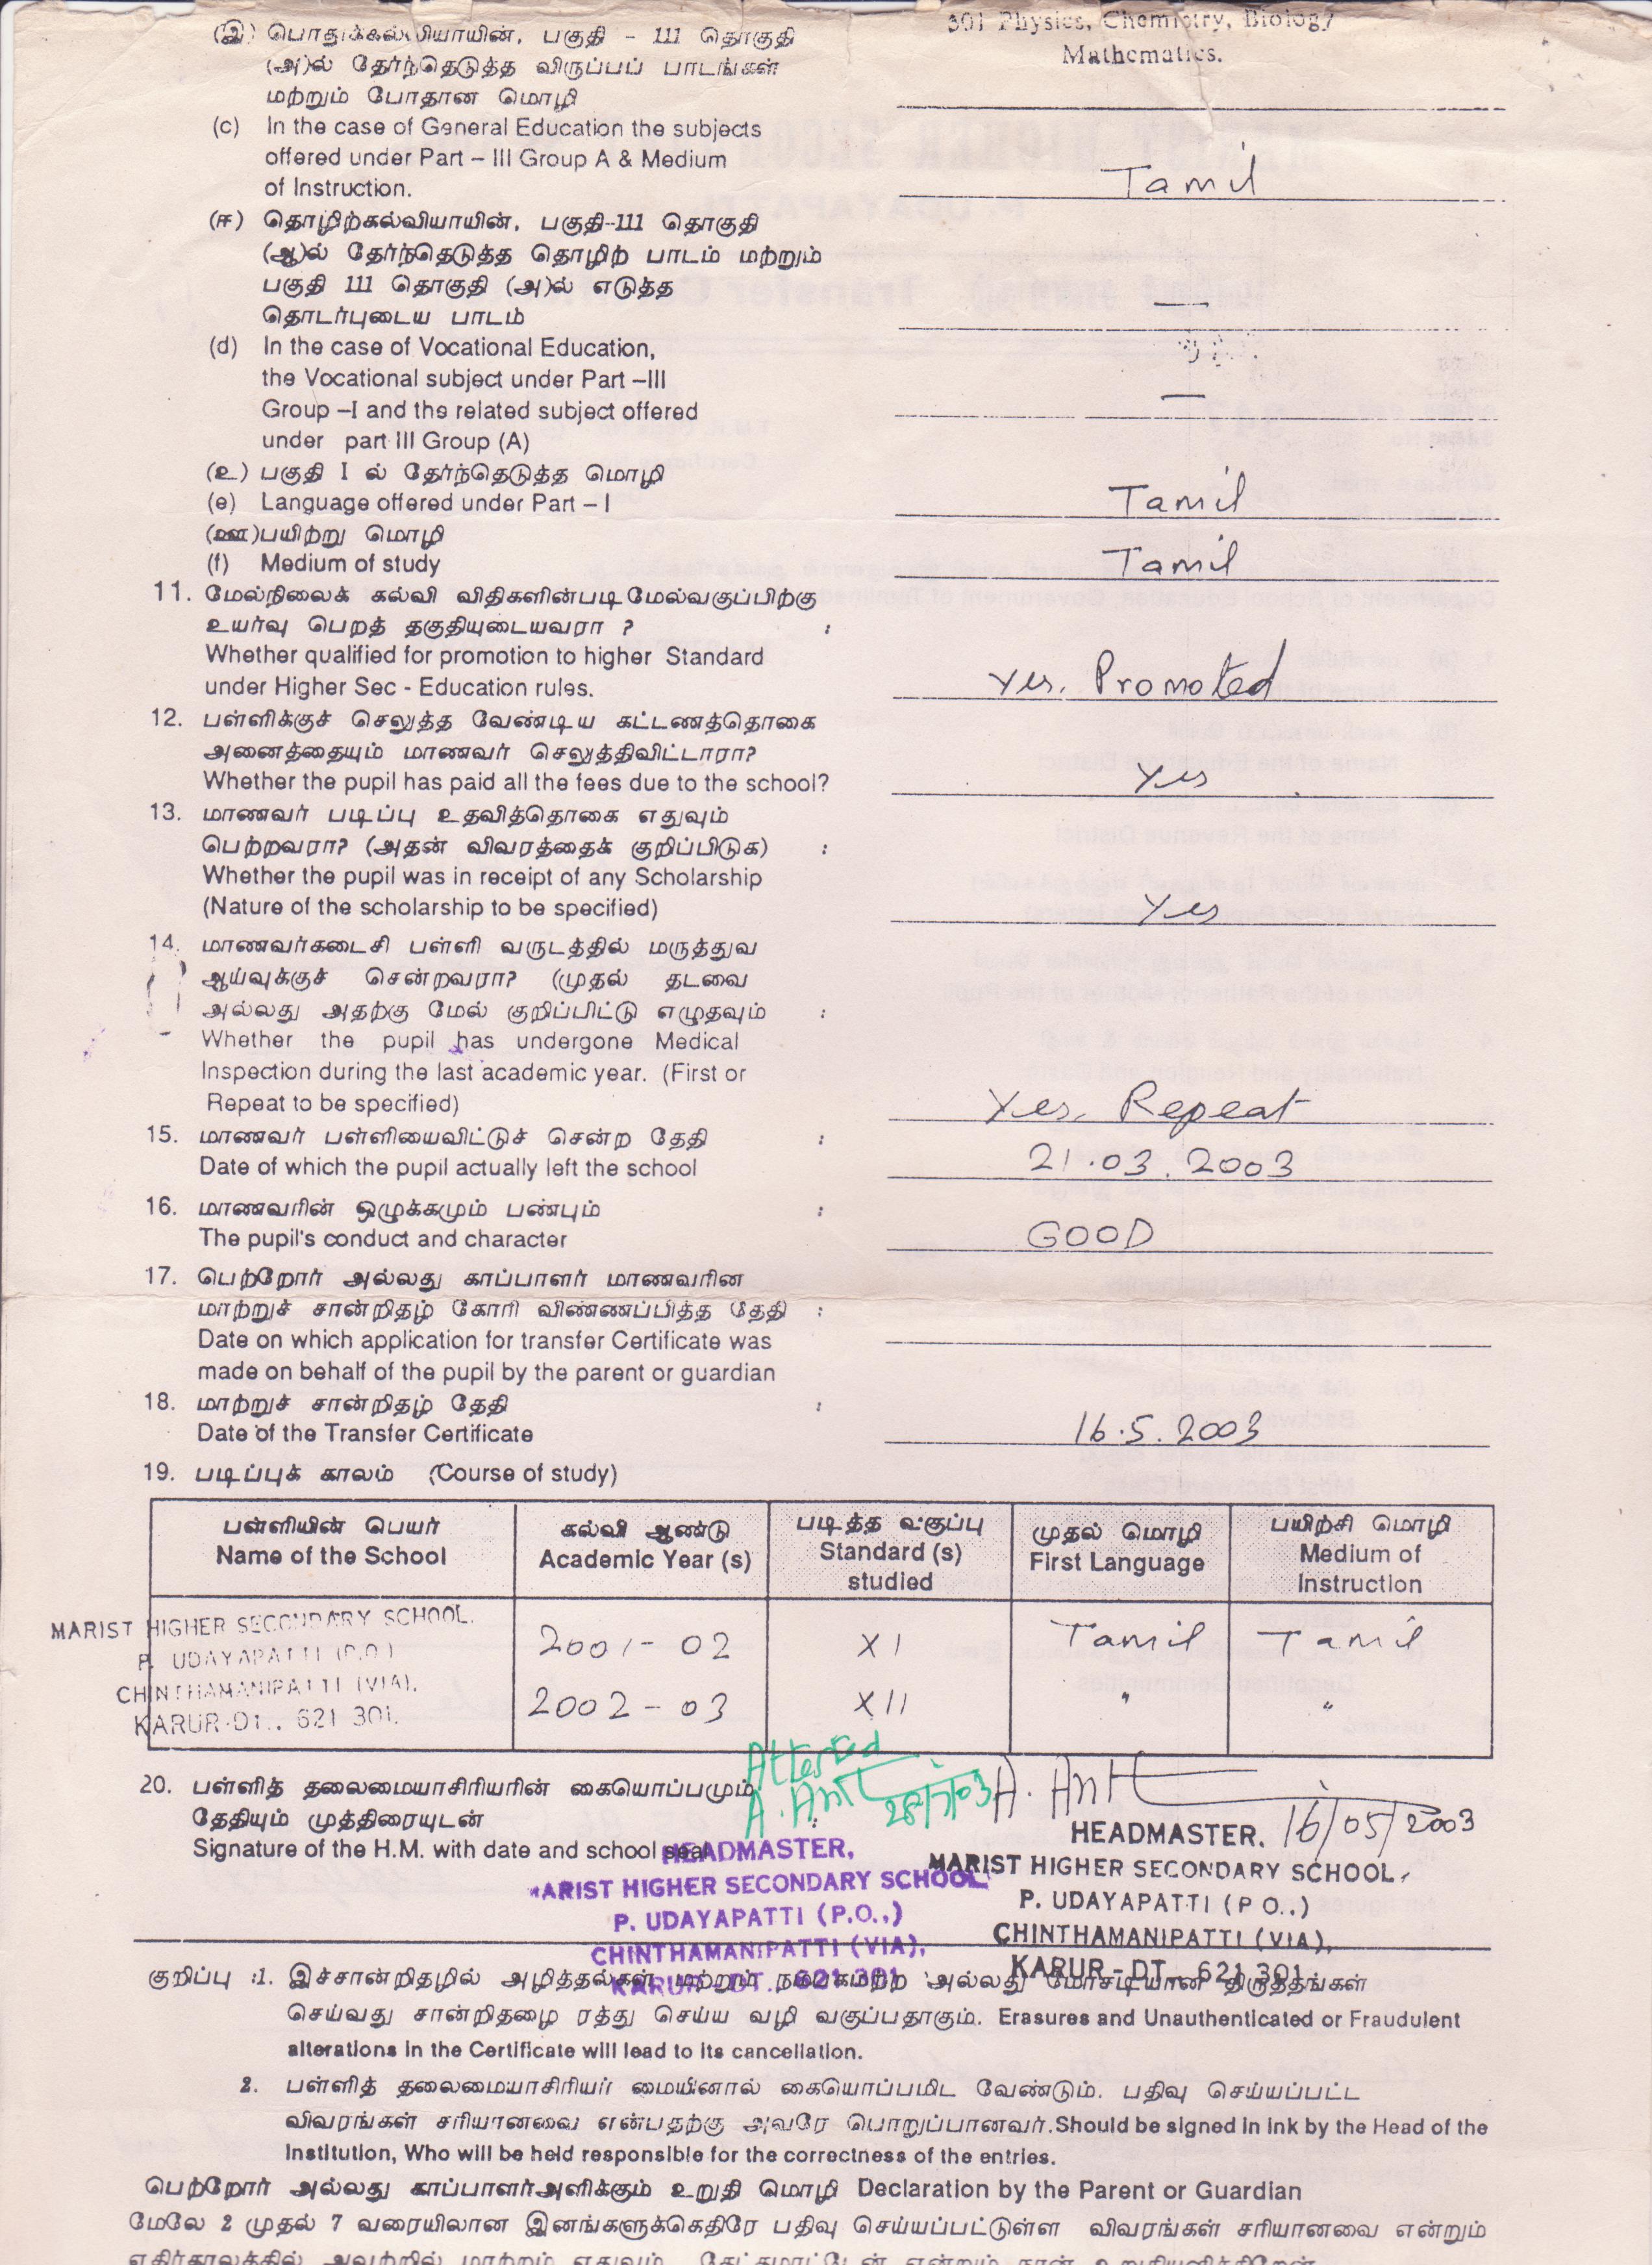 (இ) பொதுக்கல்வியாயின், பகுதி - 111 தொகுதி
(அ)ல் தேர்ந்தெடுத்த விருப்பப் பாடங்கள்
மற்றும் போதான மொழி
301 Physics, Chemistry, Biology
Mathematics.
(c) In the case of General Education the subjects
offered under Part – III Group A & Medium
of Instruction.
Tamil
(ஈ) தொழிற்கல்வியாயின், பகுதி-111 தொகுதி
(ஆ)ல் தேர்ந்தெடுத்த தொழிற் பாடம் மற்றும்
பகுதி 111 தொகுதி (அ)ல் எடுத்த
தொடர்புடைய பாடம்
—
(d) In the case of Vocational Education,
the Vocational subject under Part –III
Group –I and the related subject offered
under part III Group (A)
—
(உ) பகுதி I ல் தேர்ந்தெடுத்த மொழி
(e) Language offered under Part – I
Tamil
(ஊ)பயிற்று மொழி
(f) Medium of study
Tamil
11. மேல்நிலைக் கல்வி விதிகளின்படி மேல்வகுப்பிற்கு
உயர்வு பெறத் தகுதியுடையவரா ? :
Whether qualified for promotion to higher Standard
under Higher Sec - Education rules.
Yes. Promoted
12. பள்ளிக்குச் செலுத்த வேண்டிய கட்டணத்தொகை
அனைத்தையும் மாணவர் செலுத்திவிட்டாரா?
Whether the pupil has paid all the fees due to the school?
Yes
13. மாணவர் படிப்பு உதவித்தொகை எதுவும்
பெற்றவரா? (அதன் விவரத்தைக் குறிப்பிடுக) :
Whether the pupil was in receipt of any Scholarship
(Nature of the scholarship to be specified)
Yes
14. மாணவர்கடைசி பள்ளி வருடத்தில் மருத்துவ
ஆய்வுக்குச் சென்றவரா? (முதல் தடவை
அல்லது அதற்கு மேல் குறிப்பிட்டு எழுதவும் :
Whether the pupil has undergone Medical
Inspection during the last academic year. (First or
Repeat to be specified)
Yes. Repeat
15. மாணவர் பள்ளியைவிட்டுச் சென்ற தேதி :
Date of which the pupil actually left the school
21.03.2003
16. மாணவரின் ஒழுக்கமும் பண்பும் :
The pupil's conduct and character
GOOD
17. பெற்றோர் அல்லது காப்பாளர் மாணவரின
மாற்றுச் சான்றிதழ் கோரி விண்ணப்பித்த தேதி :
Date on which application for transfer Certificate was
made on behalf of the pupil by the parent or guardian
18. மாற்றுச் சான்றிதழ் தேதி :
Date of the Transfer Certificate
16.5.2003
19. படிப்புக் காலம் (Course of study)
பள்ளியின் பெயர் கல்வி ஆண்டு படித்த வகுப்பு முதல் மொழி பயிற்சி மொழி
Name of the School Academic Year (s) Standard (s) First Language Medium of
studied Instruction
MARIST HIGHER SECONDARY SCHOOL.
P. UDAYAPATTI (P.O.)
CHINTHAMANIPATTI (VIA),
KARUR-DT., 621 301.
2001 - 02 XI Tamil Tamil
2002 - 03 XII " "
Attested
A. Ant 28/7/03
A. Ant
16/05/2003
20. பள்ளித் தலைமையாசிரியரின் கையொப்பமும்
தேதியும் முத்திரையுடன் :
Signature of the H.M. with date and school seal
HEADMASTER,
MARIST HIGHER SECONDARY SCHOOL,
P. UDAYAPATTI (P.O.,)
CHINTHAMANIPATTI (VIA),
KARUR-DT. 621 301
HEADMASTER.
MARIST HIGHER SECONDARY SCHOOL,
P. UDAYAPATTI (P O.,)
CHINTHAMANIPATTI (VIA),
KARUR - DT., 621 301
குறிப்பு :1. இச்சான்றிதழில் அழித்தல்கள் மற்றும் நம்பகமற்ற அல்லது மோசடியான திருத்தங்கள்
செய்வது சான்றிதழை ரத்து செய்ய வழி வகுப்பதாகும். Erasures and Unauthenticated or Fraudulent
alterations in the Certificate will lead to its cancellation.
2. பள்ளித் தலைமையாசிரியர் மையினால் கையொப்பமிட வேண்டும். பதிவு செய்யப்பட்ட
விவரங்கள் சரியானவை என்பதற்கு அவரே பொறுப்பானவர்.Should be signed in ink by the Head of the
Institution, Who will be held responsible for the correctness of the entries.
பெற்றோர் அல்லது காப்பாளர்அளிக்கும் உறுதி மொழி Declaration by the Parent or Guardian
மேலே 2 முதல் 7 வரையிலான இனங்களுக்கெதிரே பதிவு செய்யப்பட்டுள்ள விவரங்கள் சரியானவை என்றும்
எதிர்காலத்தில் அவற்றில் மாற்றம் எதுவும் கேட்கமாட்டேன் என்றும் நான் உறுதியளிக்கிறேன்